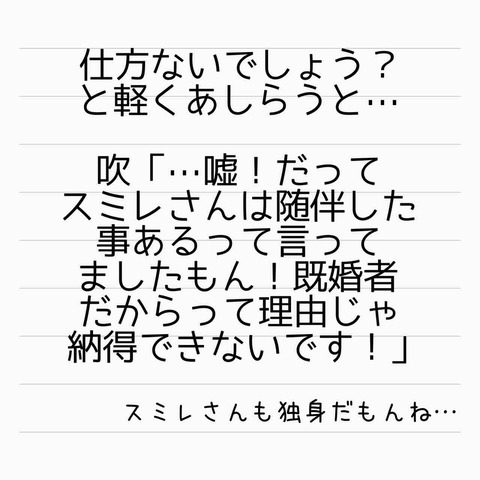 仕方ないでしょう？
と軽くあしらうと…
吹「…嘘！だって
スミレさんは随伴した
事あるって言って
ましたもん！既婚者
だからって理由じゃ
納得できないです！」
スミレさんも独身だもんね…